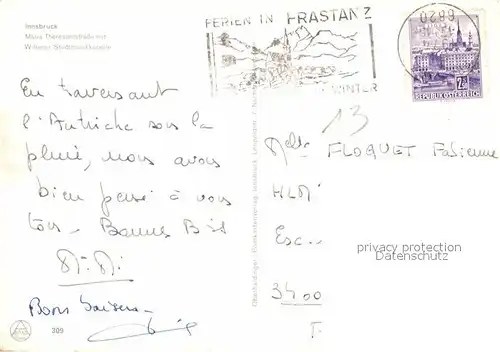 Innsbruck
Maria Theresienstraße mit
FERIEN IN FRASTANZ
WINTER
6820
REPUBLIK ÖSTERREICH
13
En traversant
l'Autriche sous la
pluie, nous avons
bien pensé à vous
tous. Bonnes Bises
Bons baisers
Melle FLOQUET Fabienne
HLM
Esc.
3400
F.
privacy protection
Datenschutz
309